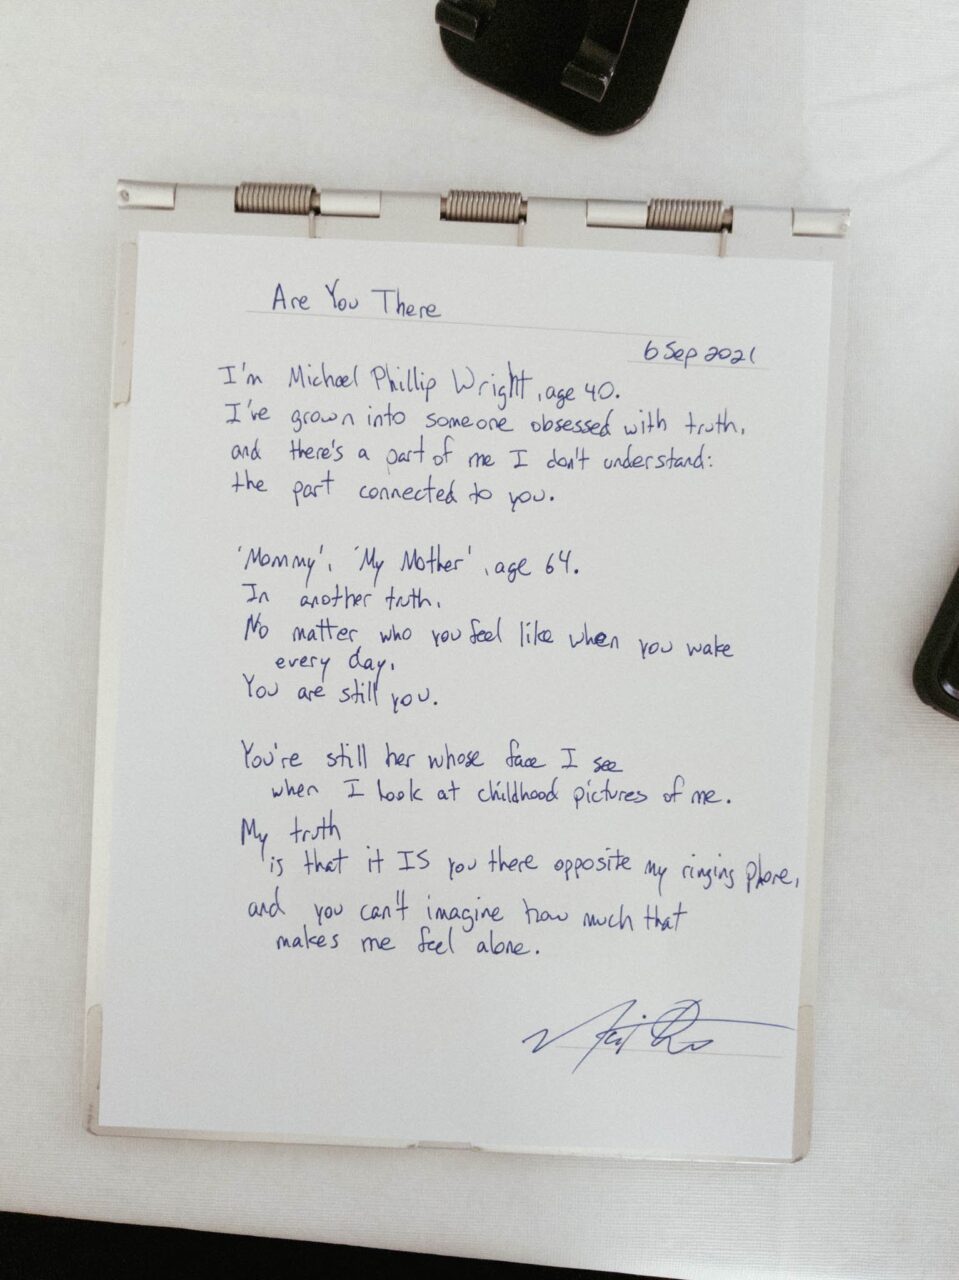 Are You There
6 Sep 2021
I'm Michael Phillip Wright, age 40.
I've grown into someone obsessed with truth,
and there's a part of me I don't understand:
the part connected to you.
'Mommy', 'My Mother', age 64.
In another truth,
No matter who you feel like when you wake
every day,
You are still you.
You're still her whose face I see
when I look at childhood pictures of me.
My truth
is that it IS you there opposite my ringing phone,
and you can't imagine how much that
makes me feel alone.